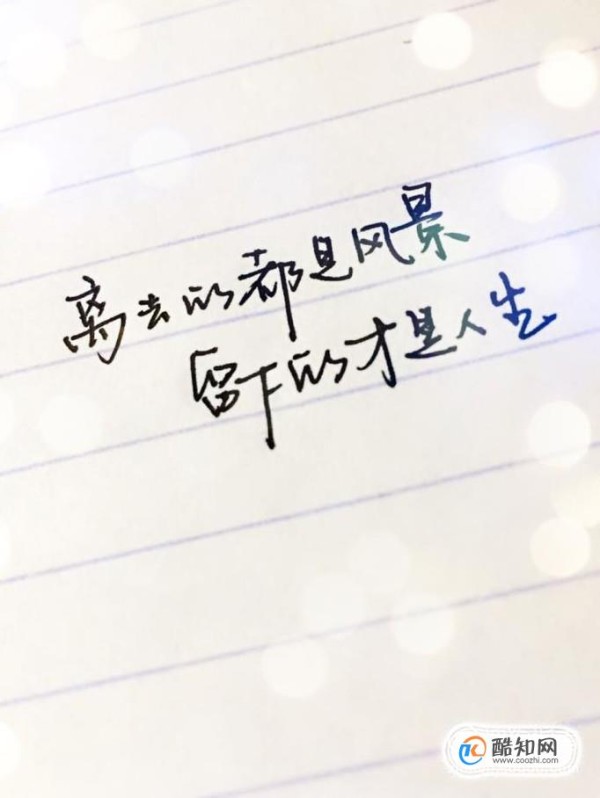 离去的都是风景
留下的才是人生
酷知网
www.coozhi.com